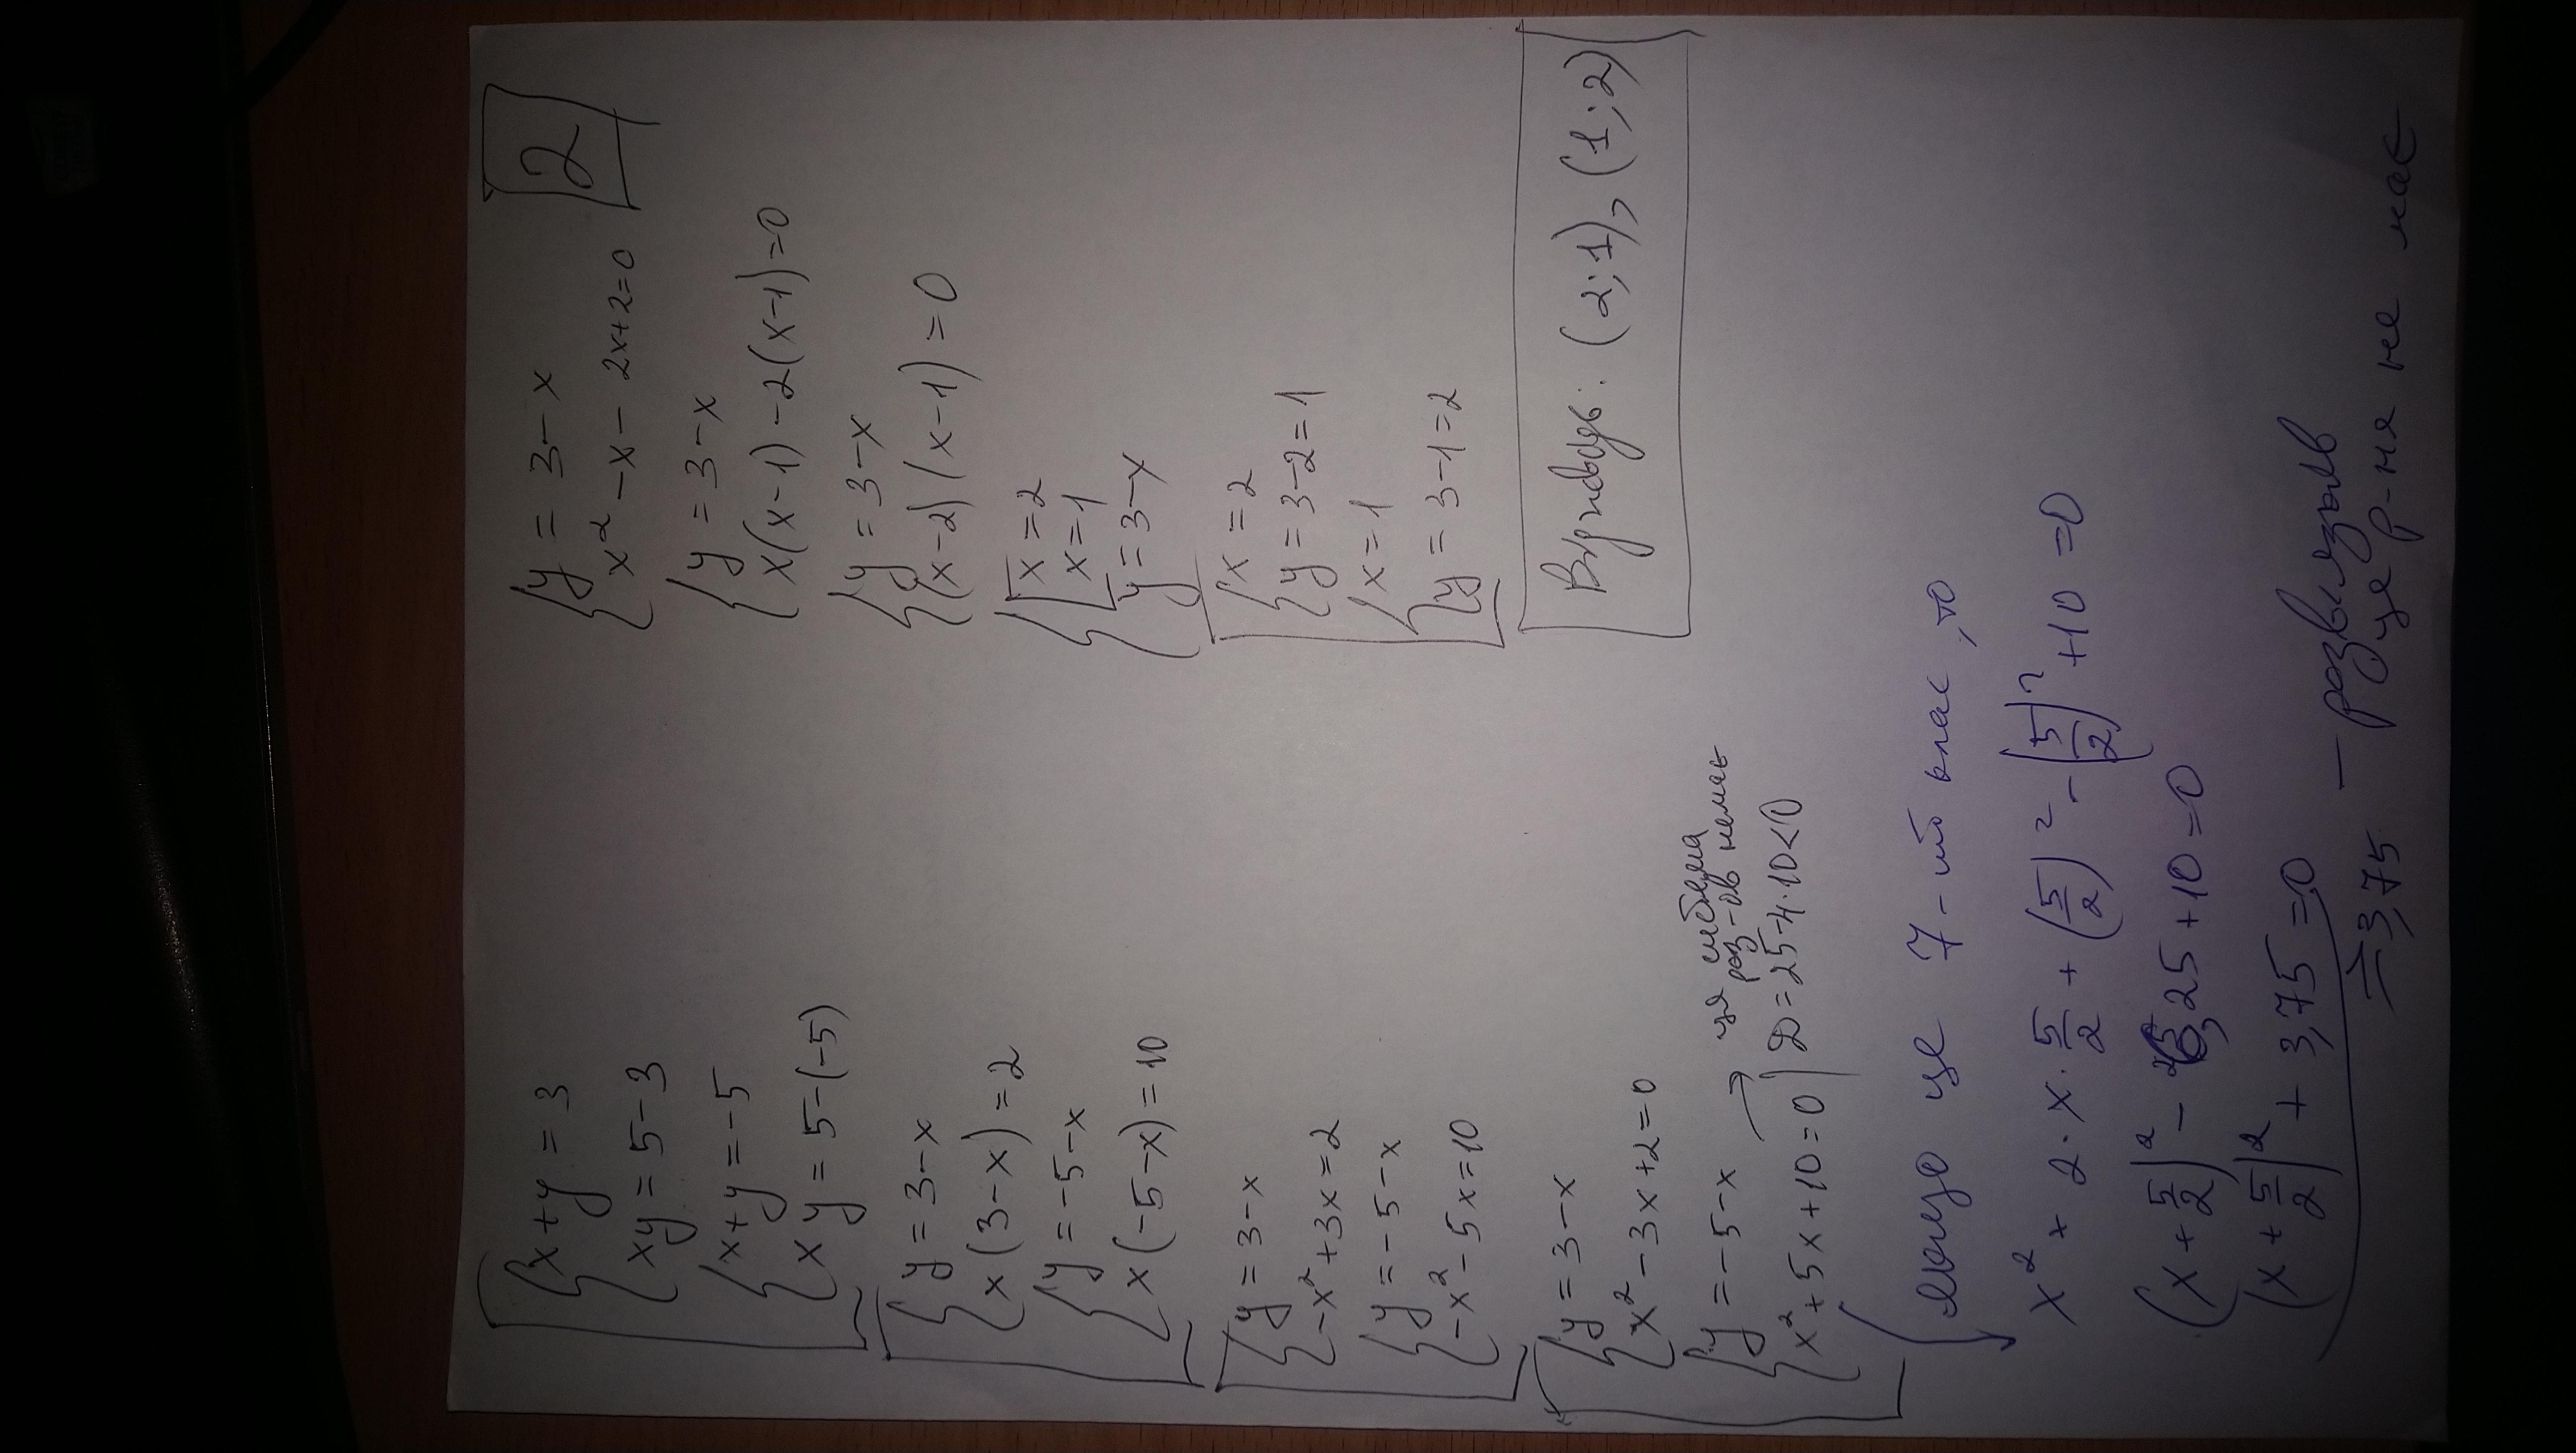 2
x+y=3
xy=5-3
x+y=-5
xy=5-(-5)
y=3-x
x(3-x)=2
y=-5-x
x(-5-x)=10
y=3-x
-x²+3x=2
y=-5-x
-x²-5x=10
y=3-x
x²-3x+2=0
y=-5-x → ця система
роз-ів немає
x²+5x+10=0 | D=25-4·10<0
y=3-x
x²-x-2x+2=0
y=3-x
x(x-1)-2(x-1)=0
y=3-x
(x-2)(x-1)=0
x=2
x=1
y=3-x
x=2
y=3-2=1
x=1
y=3-1=2
Відповідь: (2;1), (1;2)
якщо це 7-ий клас, то
x²+2·x·5/2+(5/2)²-(5/2)²+10=0
(x+5/2)²-6,25+10=0
(x+5/2)²+3,75=0
≥3,75 – розв'язків
це р-ня не має